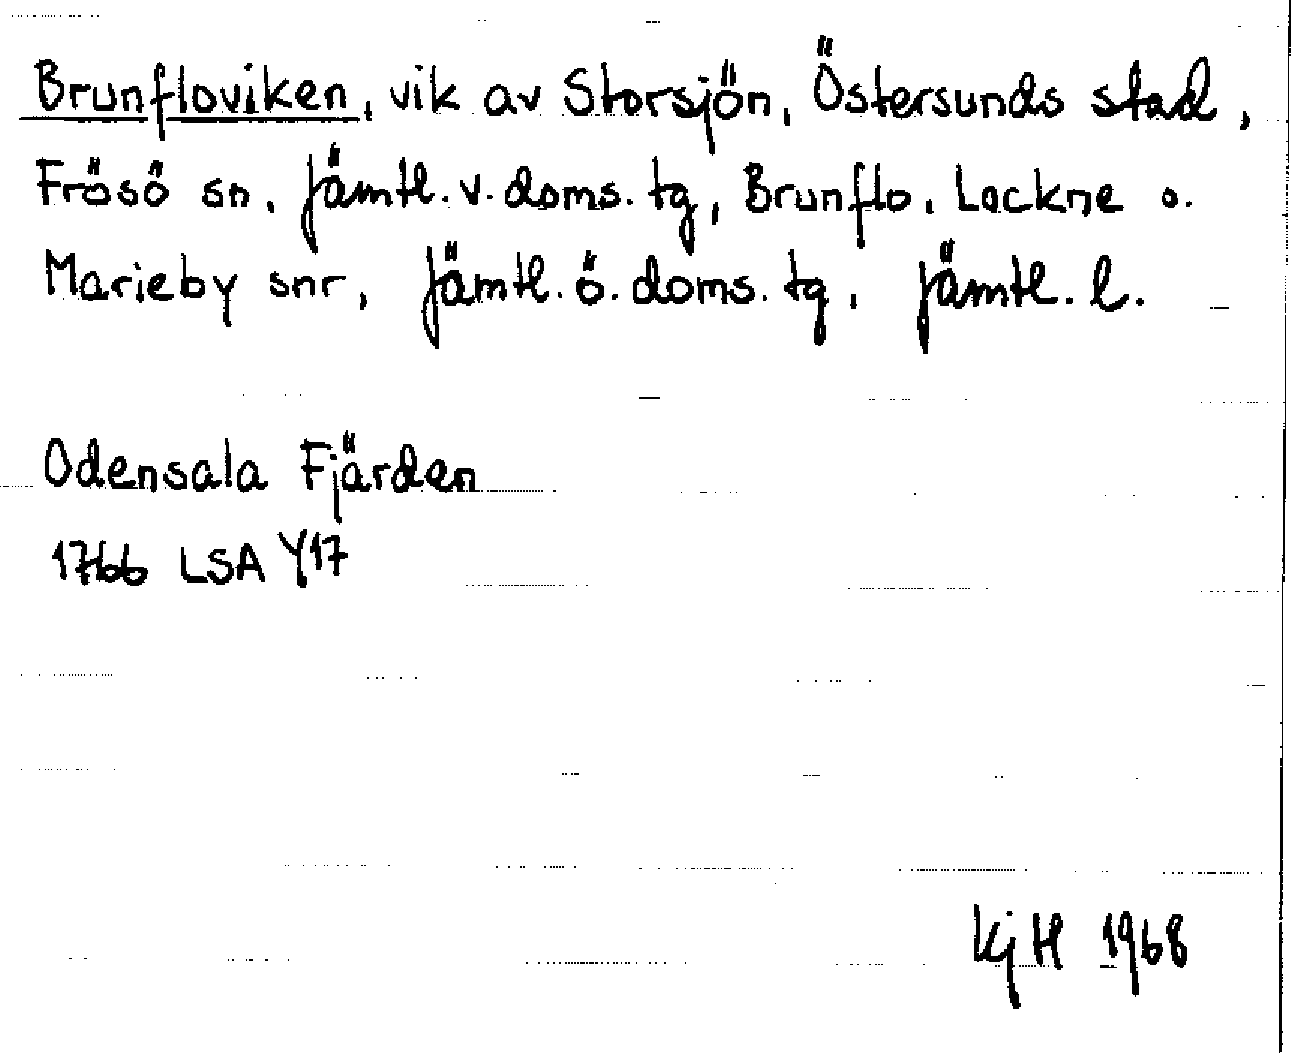 Brunfloviken, vik av Storsjön, Östersunds stad,
Frösö sn, Jämtl. v. doms. tg, Brunflo, Lockne o.
Marieby snr, Jämtl. ö. doms. tg, Jämtl. l.
Odensala Fjärden
1766 LSA Y17
Kj H 1968